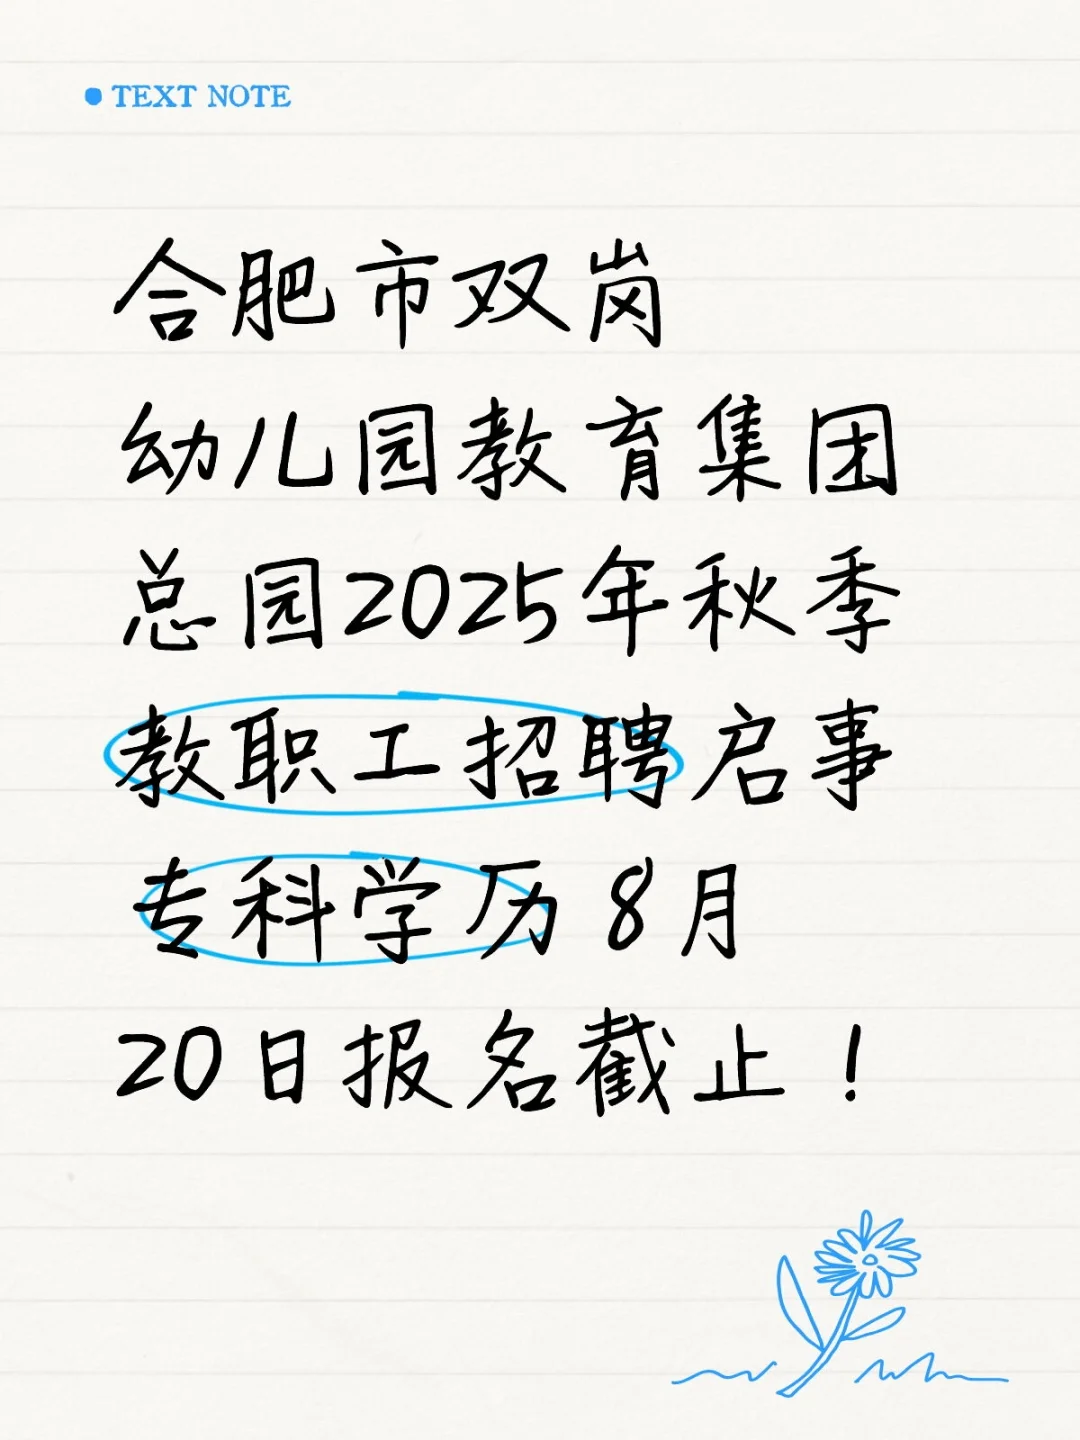 TEXT NOTE
合肥市双岗
幼儿园教育集团
总园2025年秋季
教职工招聘启事
专科学历 8月
20日报名截止！